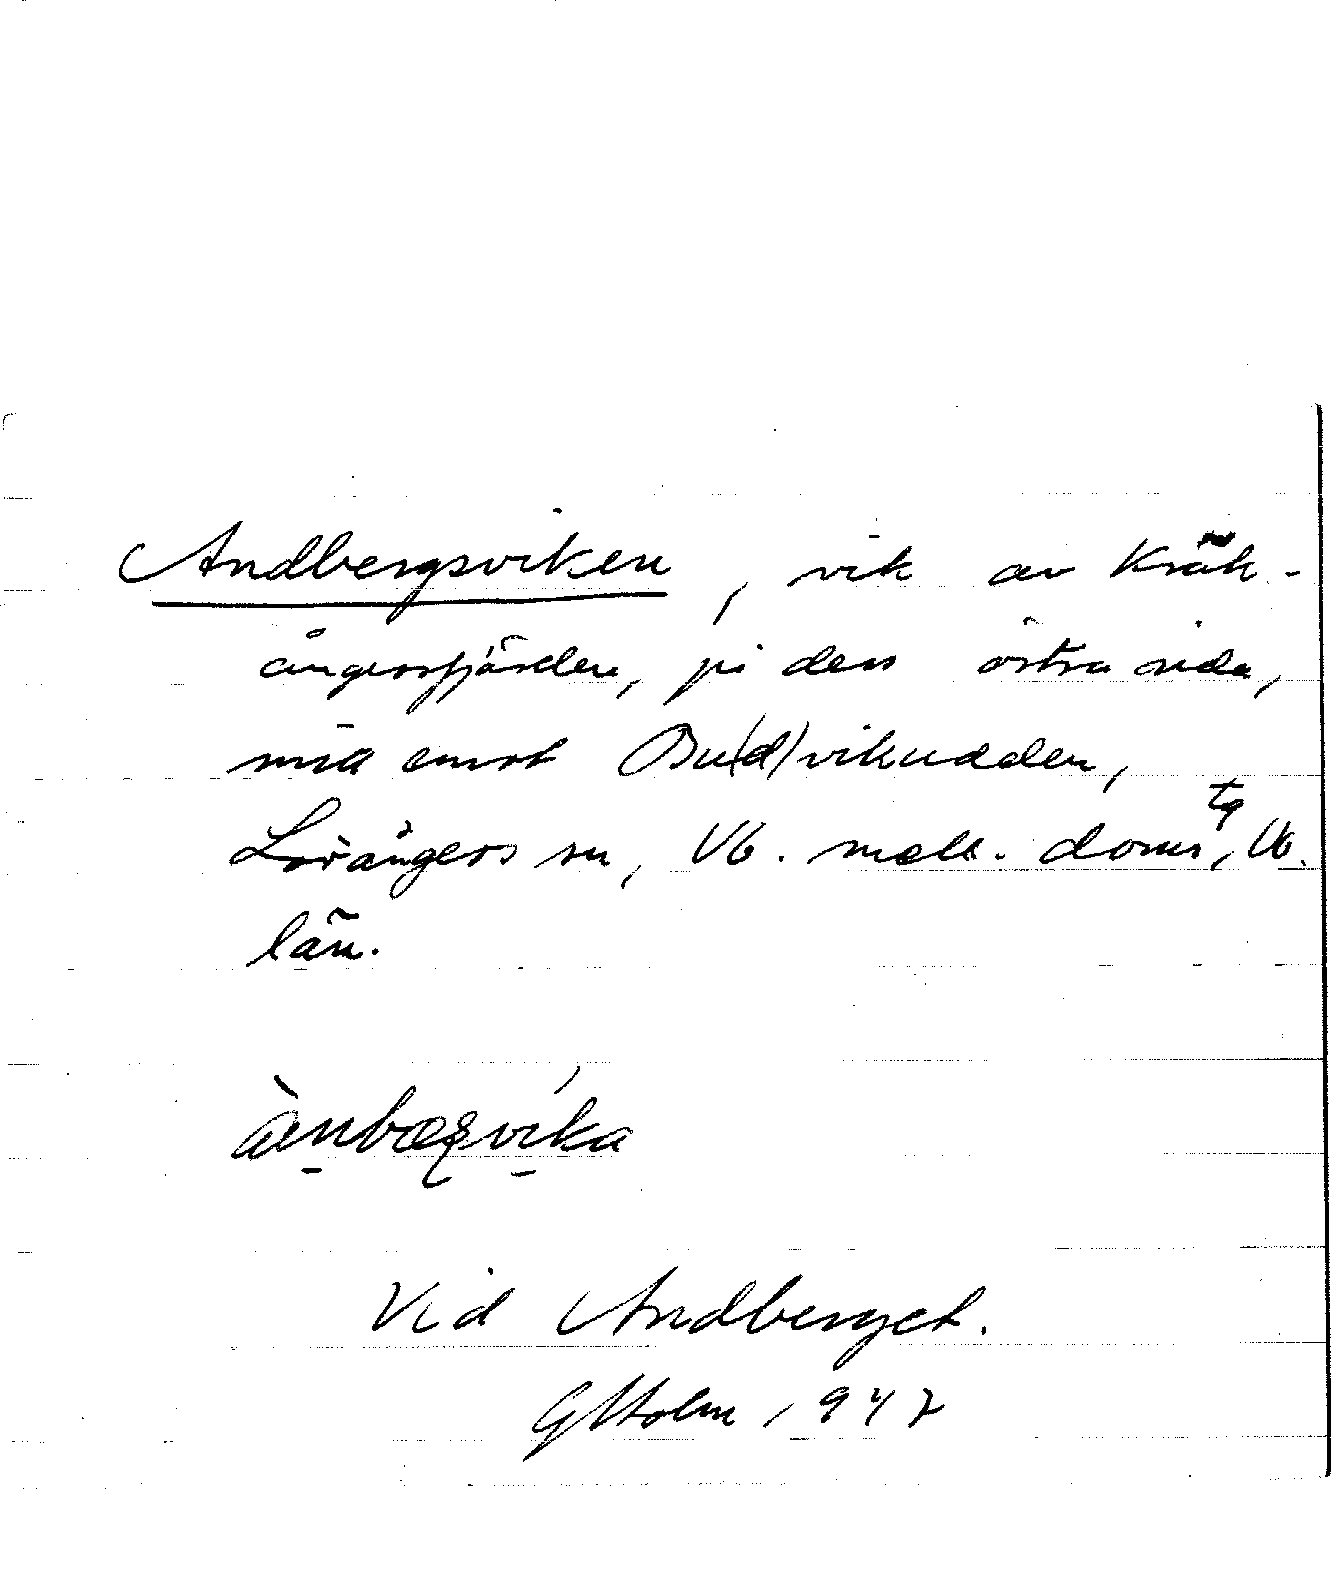 Andbergsviken, vik av Kräk-
ångersfjärden, på dess östra sida,
mitt emot Bu(d)vikudden,
Lövångers sn, Vb. mell. doms tg, Vb.
län.
ànbærvíka
Vid Andberget.
G Holm 1947